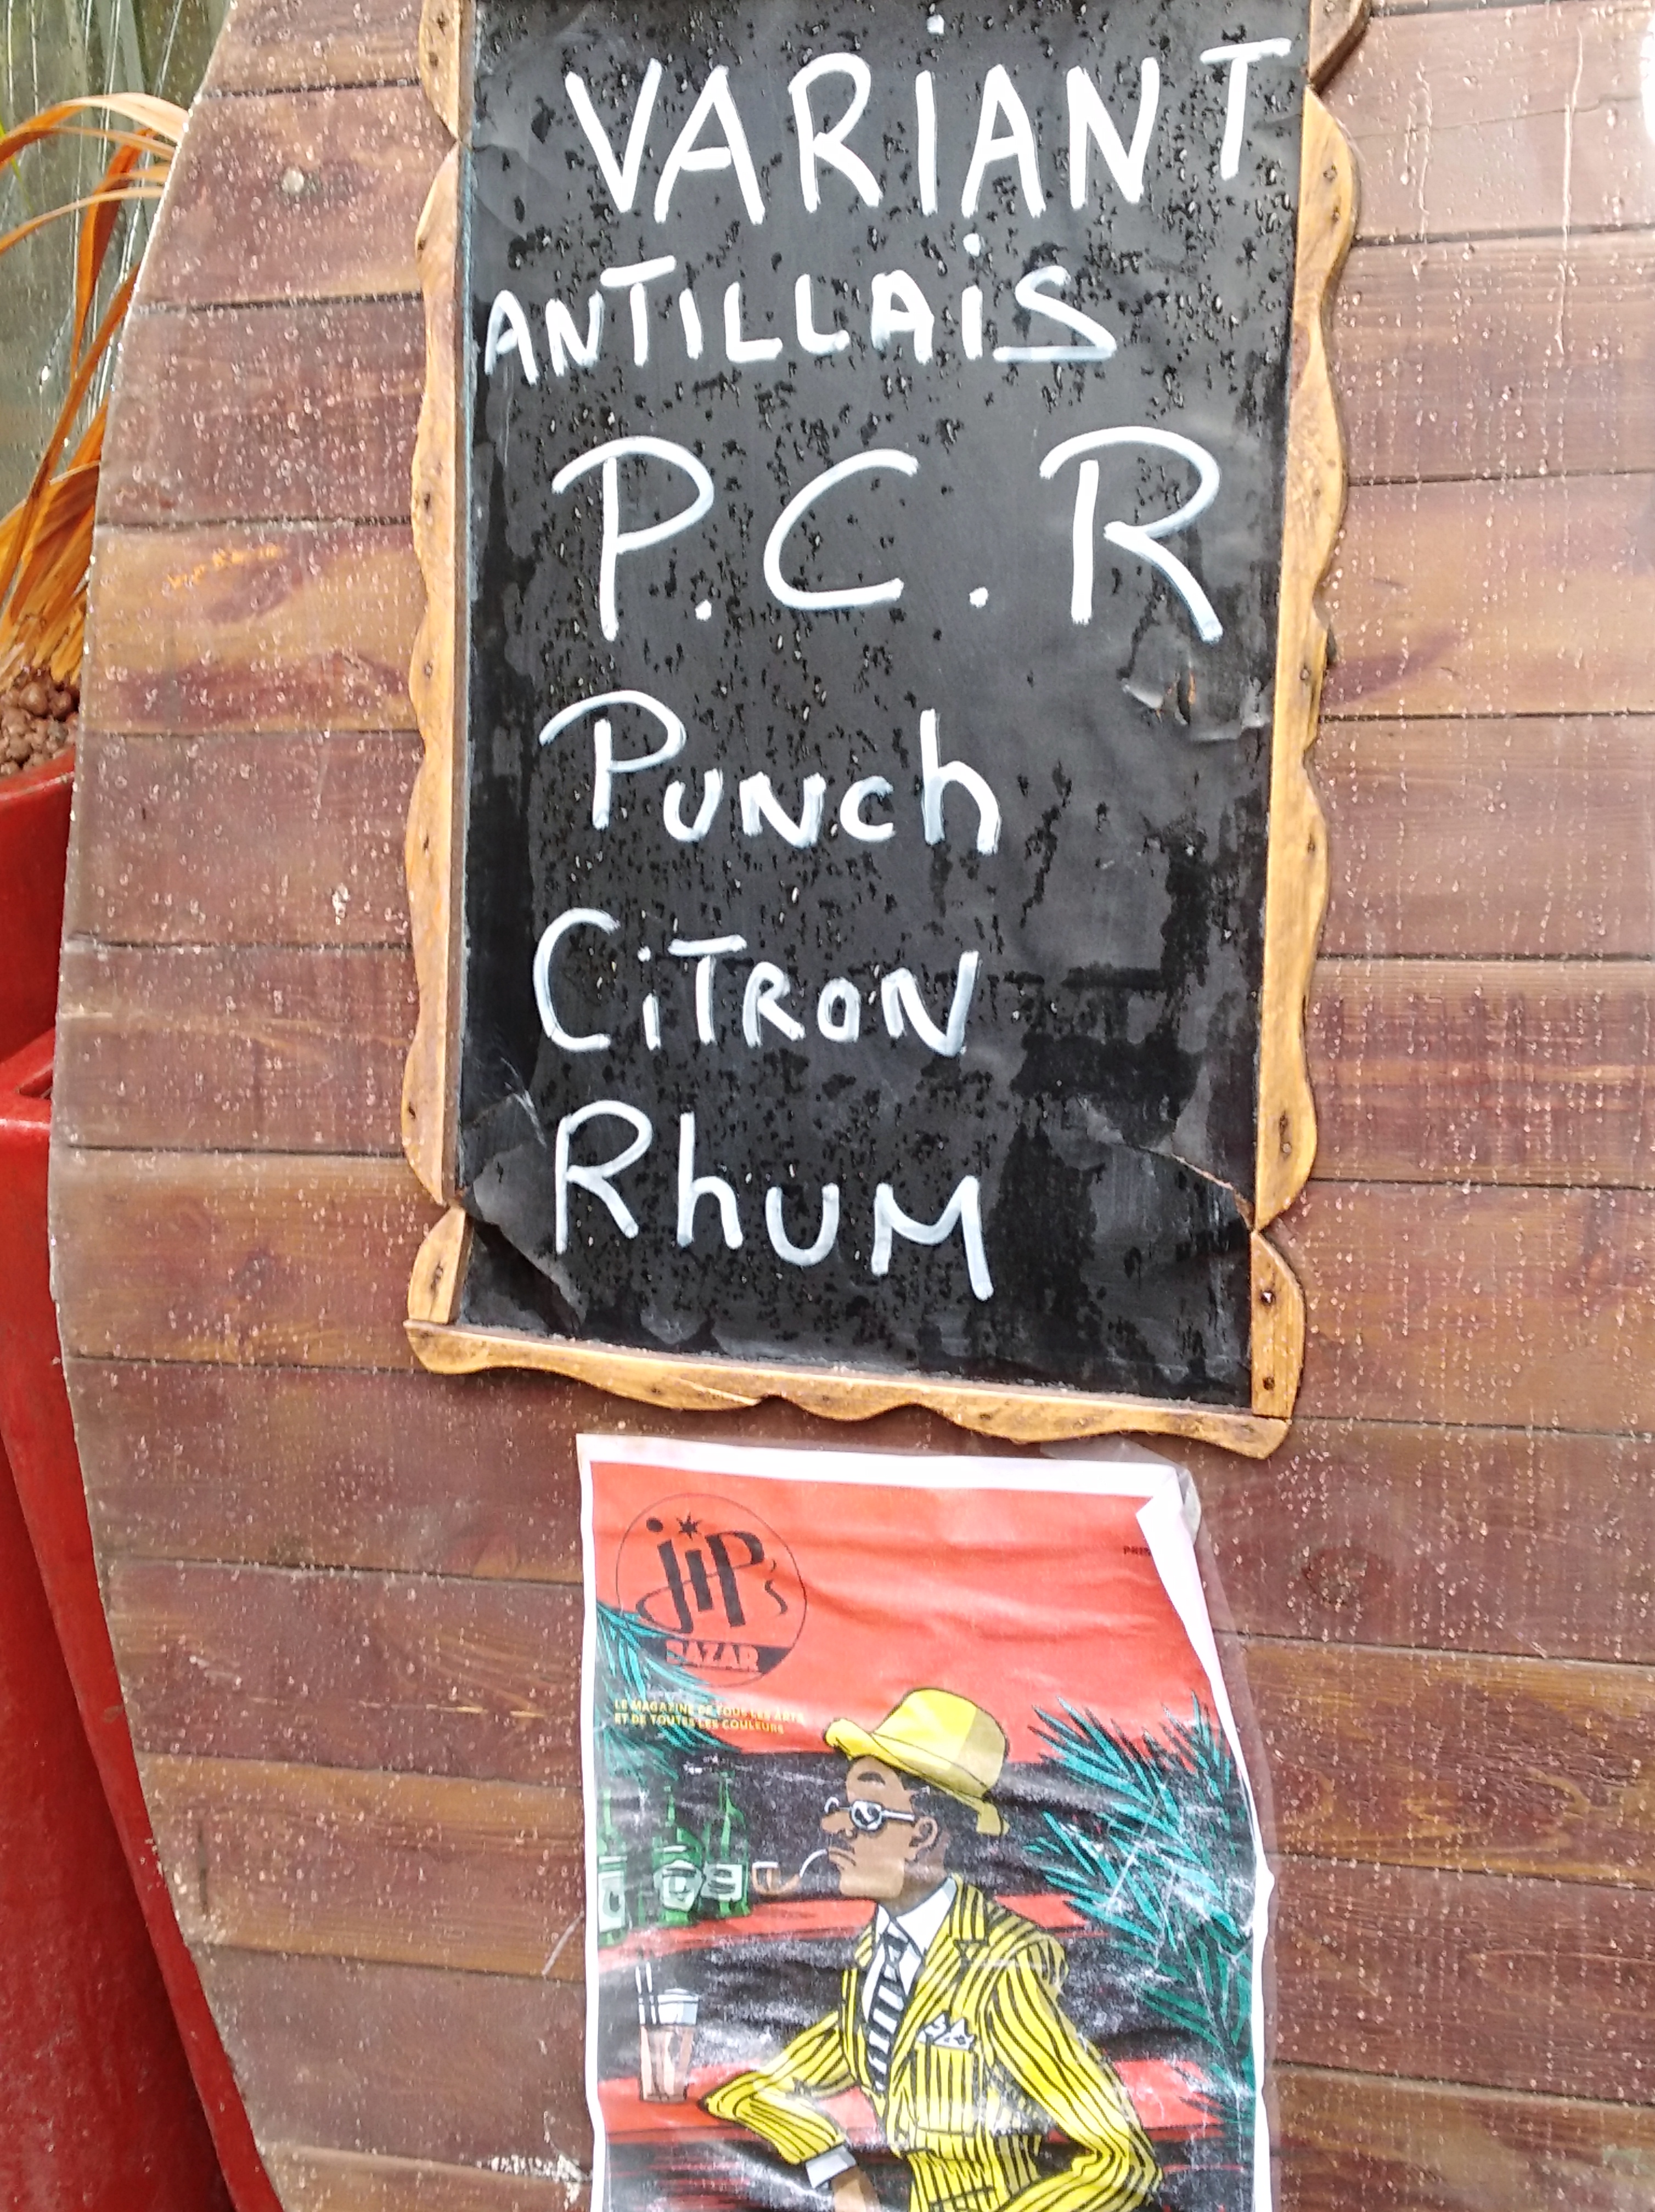 VARIANT
ANTILLAIS
P.C.R
Punch
CiTRON
RhUM
JiP's
BAZAR
LE MAGAZINE DE TOUS LES ARTS
ET DE TOUTES LES COULEURS